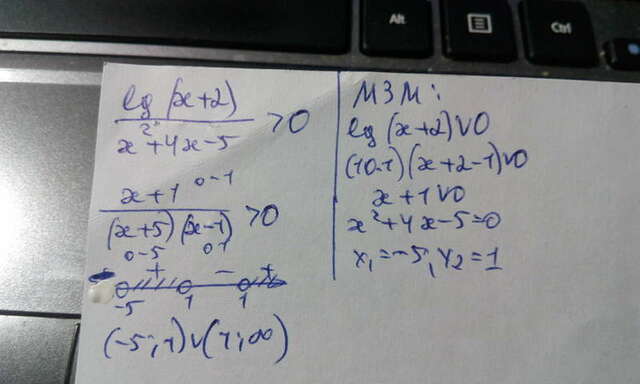 Alt
Ctrl
lg(x+2)
x²+4x-5
>0
x+1 0-1
(x+5)(x-1)
>0
0-5 0 1
+ - +
-5 1 1
(-5;-1)∪(1;∞)
МЗМ:
lg(x+2)∨0
(10-1)(x+2-1)∨0
x+1∨0
x²+4x-5=0
x₁=-5, x₂=1